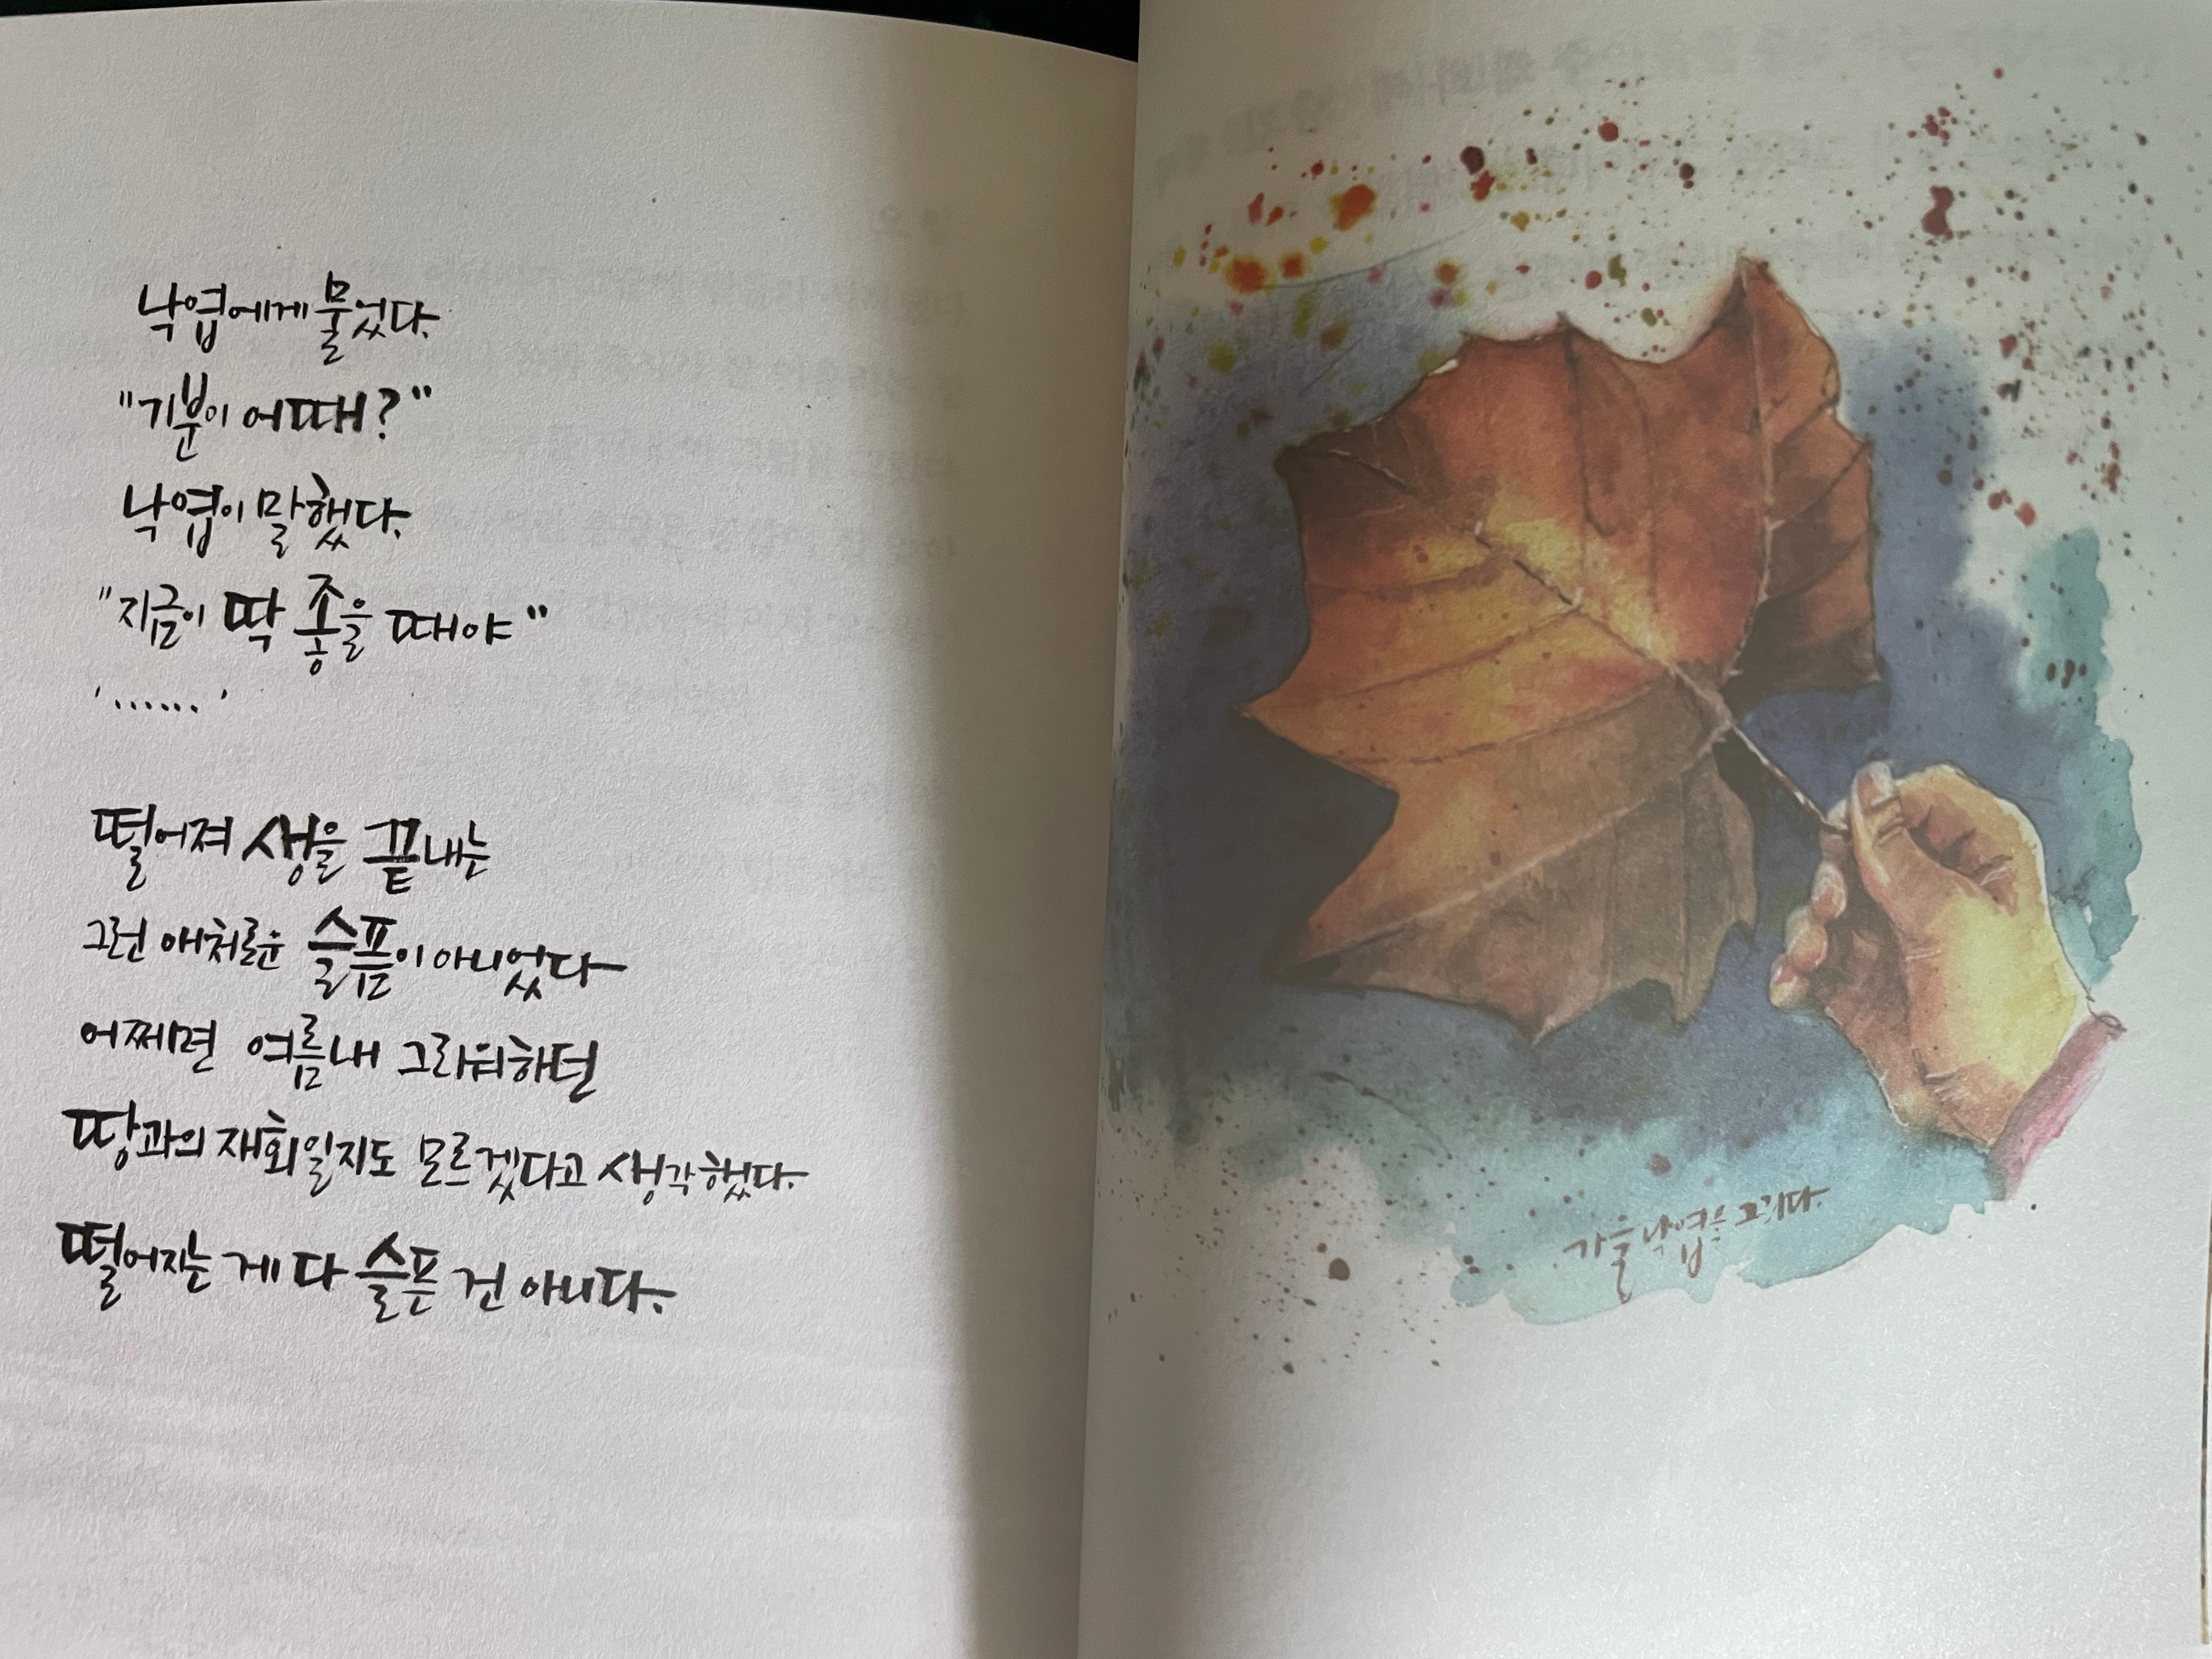 낙엽에게 물었다.
"기분이 어때?"
낙엽이 말했다.
"지금이 딱 좋을 때야"
'......'
떨어져 생을 끝내는
그런 애처로운 슬픔이 아니었다
어쩌면 여름내 그리워하던
땅과의 재회일지도 모르겠다고 생각했다.
떨어지는 게 다 슬픈 건 아니다.
가을 낙엽을 그리다.